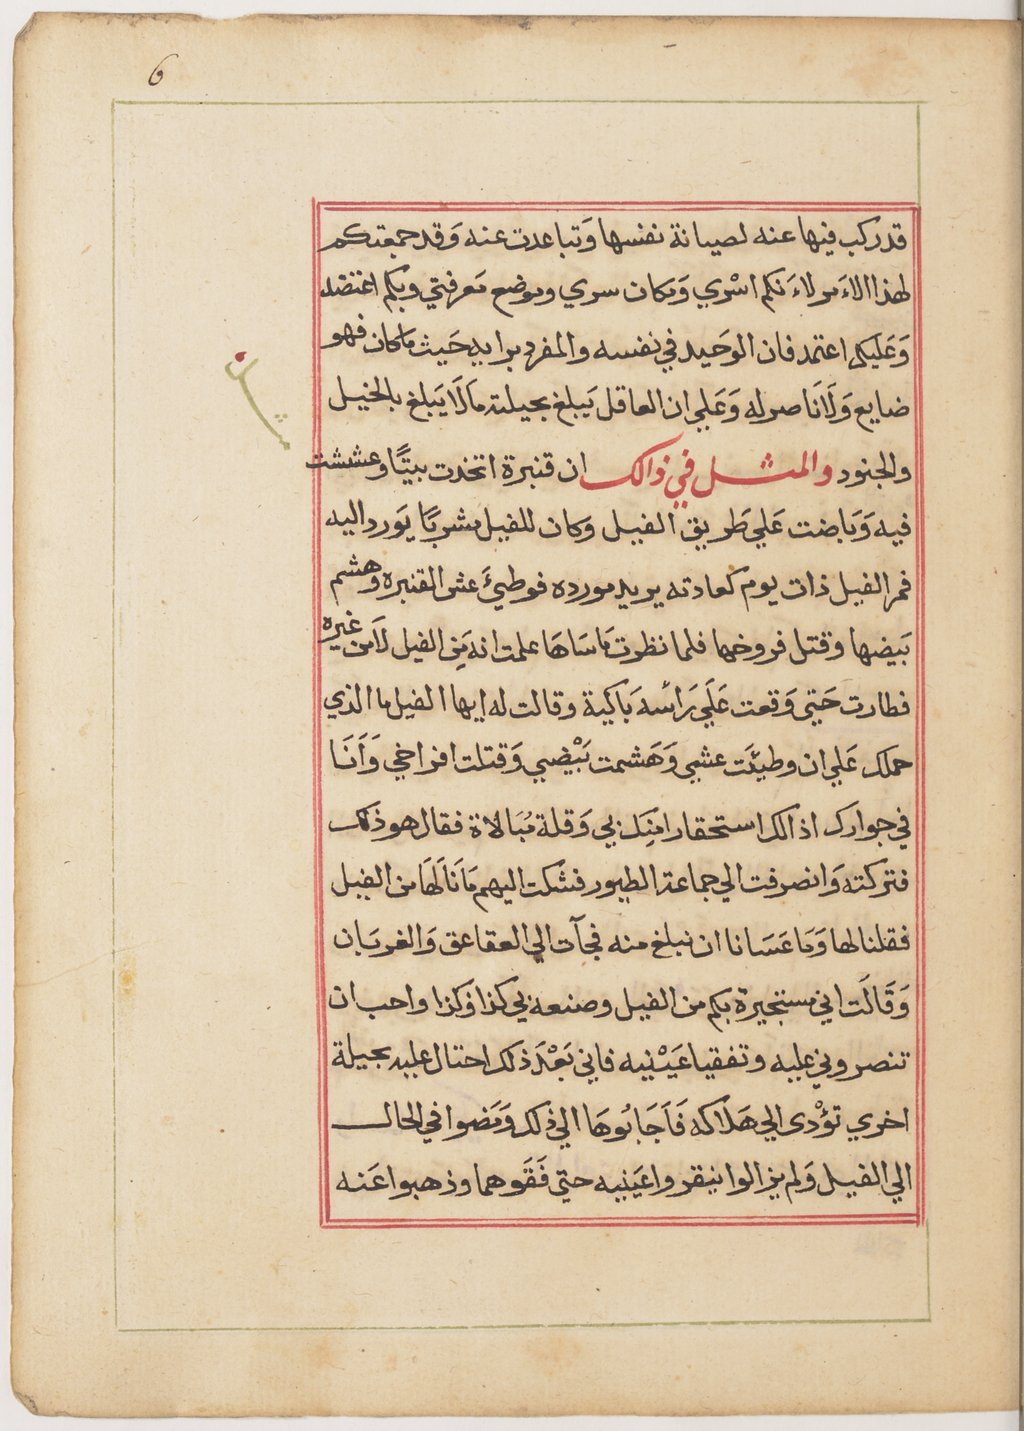 6
قد ركب فيها عنه لصيانة نفسها وَتباعدت عنه وَقد جمعتكم
لهذا الاءَمر لاءَنكم اسْري وَمكان سري وموضع مَعرفتي وبكم اعتضد
وَعَليكم اعتمد فان الوَحيد في نفسه والمفرد برايه حَيث ما كان فهو
ضايع وَلَا نَاصر له وَعَلي ان العاقل يَبلغ بحيلته مَا لَا يَبلغ بالخيل
والجنود والمثل في ذالك ان قنبرة اتخذت بيتًا وعششت
مثل
فيه وَبَاضت عَلي طَريق الفيل وَكان للفيل مشربًا يَورد اليه
فمر الفيل ذات يوم كعادته يريد مورده فوطئَ عش القنبره وهشم
بَيضها وقتل فروخها فلما نظرت مَا سَاهَا علمت انه مَن الفيل لَا مَن غيره
فطارت حَتي وَقعت عَلَي رَأسه بَاكية وقالت له ايها الفيل ما الذي
حملك عَلي ان وطيئَت عشي وَهَشمت بَيْضي وَقتلت افراخي وَأنَا
في جوارك اذالك استحقارا منِك بي وَقلة مُبَالاة فقال هو ذلك
فتركته وَانصرفت الي جماعة الطيور فشكت اليهم مَا نَالَهَا من الفيل
فقلنا لها وَمَا عَسَانا ان نبلغ منه فجآت الي العقاعق وَالغربَان
وَقَالَت اني مستجيرة بكم من الفيل وصنعه بي كذا وَكذا واحب ان
تنصروني عليه وتفقيا عَيْنيه فاني بَعْدَ ذلك احتال عليه بحيلة
اخري تؤْدى الي هَلَاكه فَاَجَابُوهَا الي ذلك وَمَضوا في الحال
الي الفيل وَلم يزالوا ينقروا عَينيه حتي فَقَوهما وذهبوا عَنه